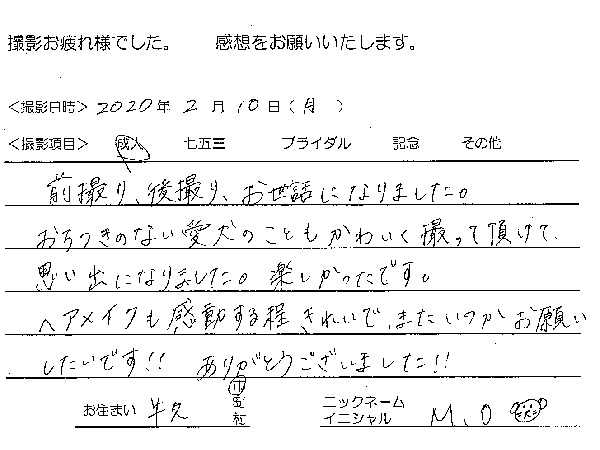 撮影お疲れ様でした。 感想をお願いいたします。
<撮影日時> 2020年 2月 10日(月)
<撮影項目> 成人 七五三 ブライダル 記念 その他
前撮り、後撮り、お世話になりました。
おちつきのない愛犬のこともかわいく撮って頂けて、
思い出になりました。楽しかったです。
ヘアメイクも感動する程きれいで、またいつかお願い
したいです!! ありがとうございました!!
お住まい 牛久 市 区 村 ニックネーム イニシャル M.O